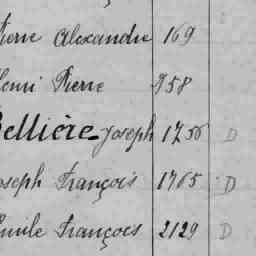 Pierre Alexandre 169
Henri Pierre 858
Bellière Joseph 1756 D
Joseph François 1765 D
Emile François 2129 D